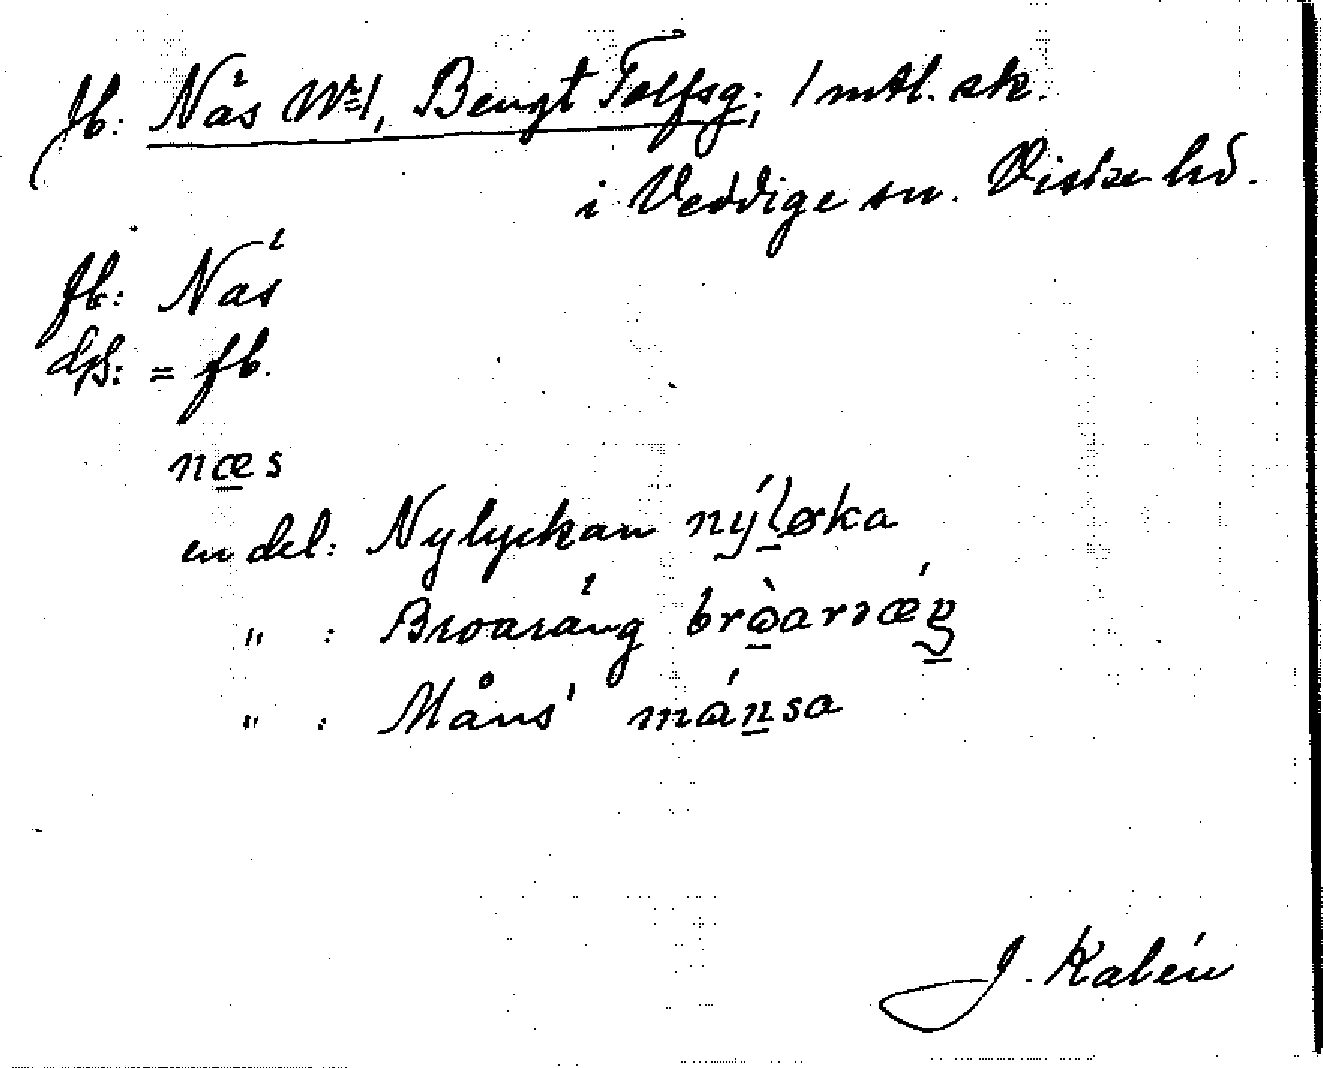 jb: Näs No 1, Bengt Tolfsg., 1 mtl. sk.
i Veddige sn. Viske hd.
fb: Näs
dps: = fb.
næs
en del: Nylyckan nýløka
" : Broaräng
" : Måns' mánsa
J. Kalén